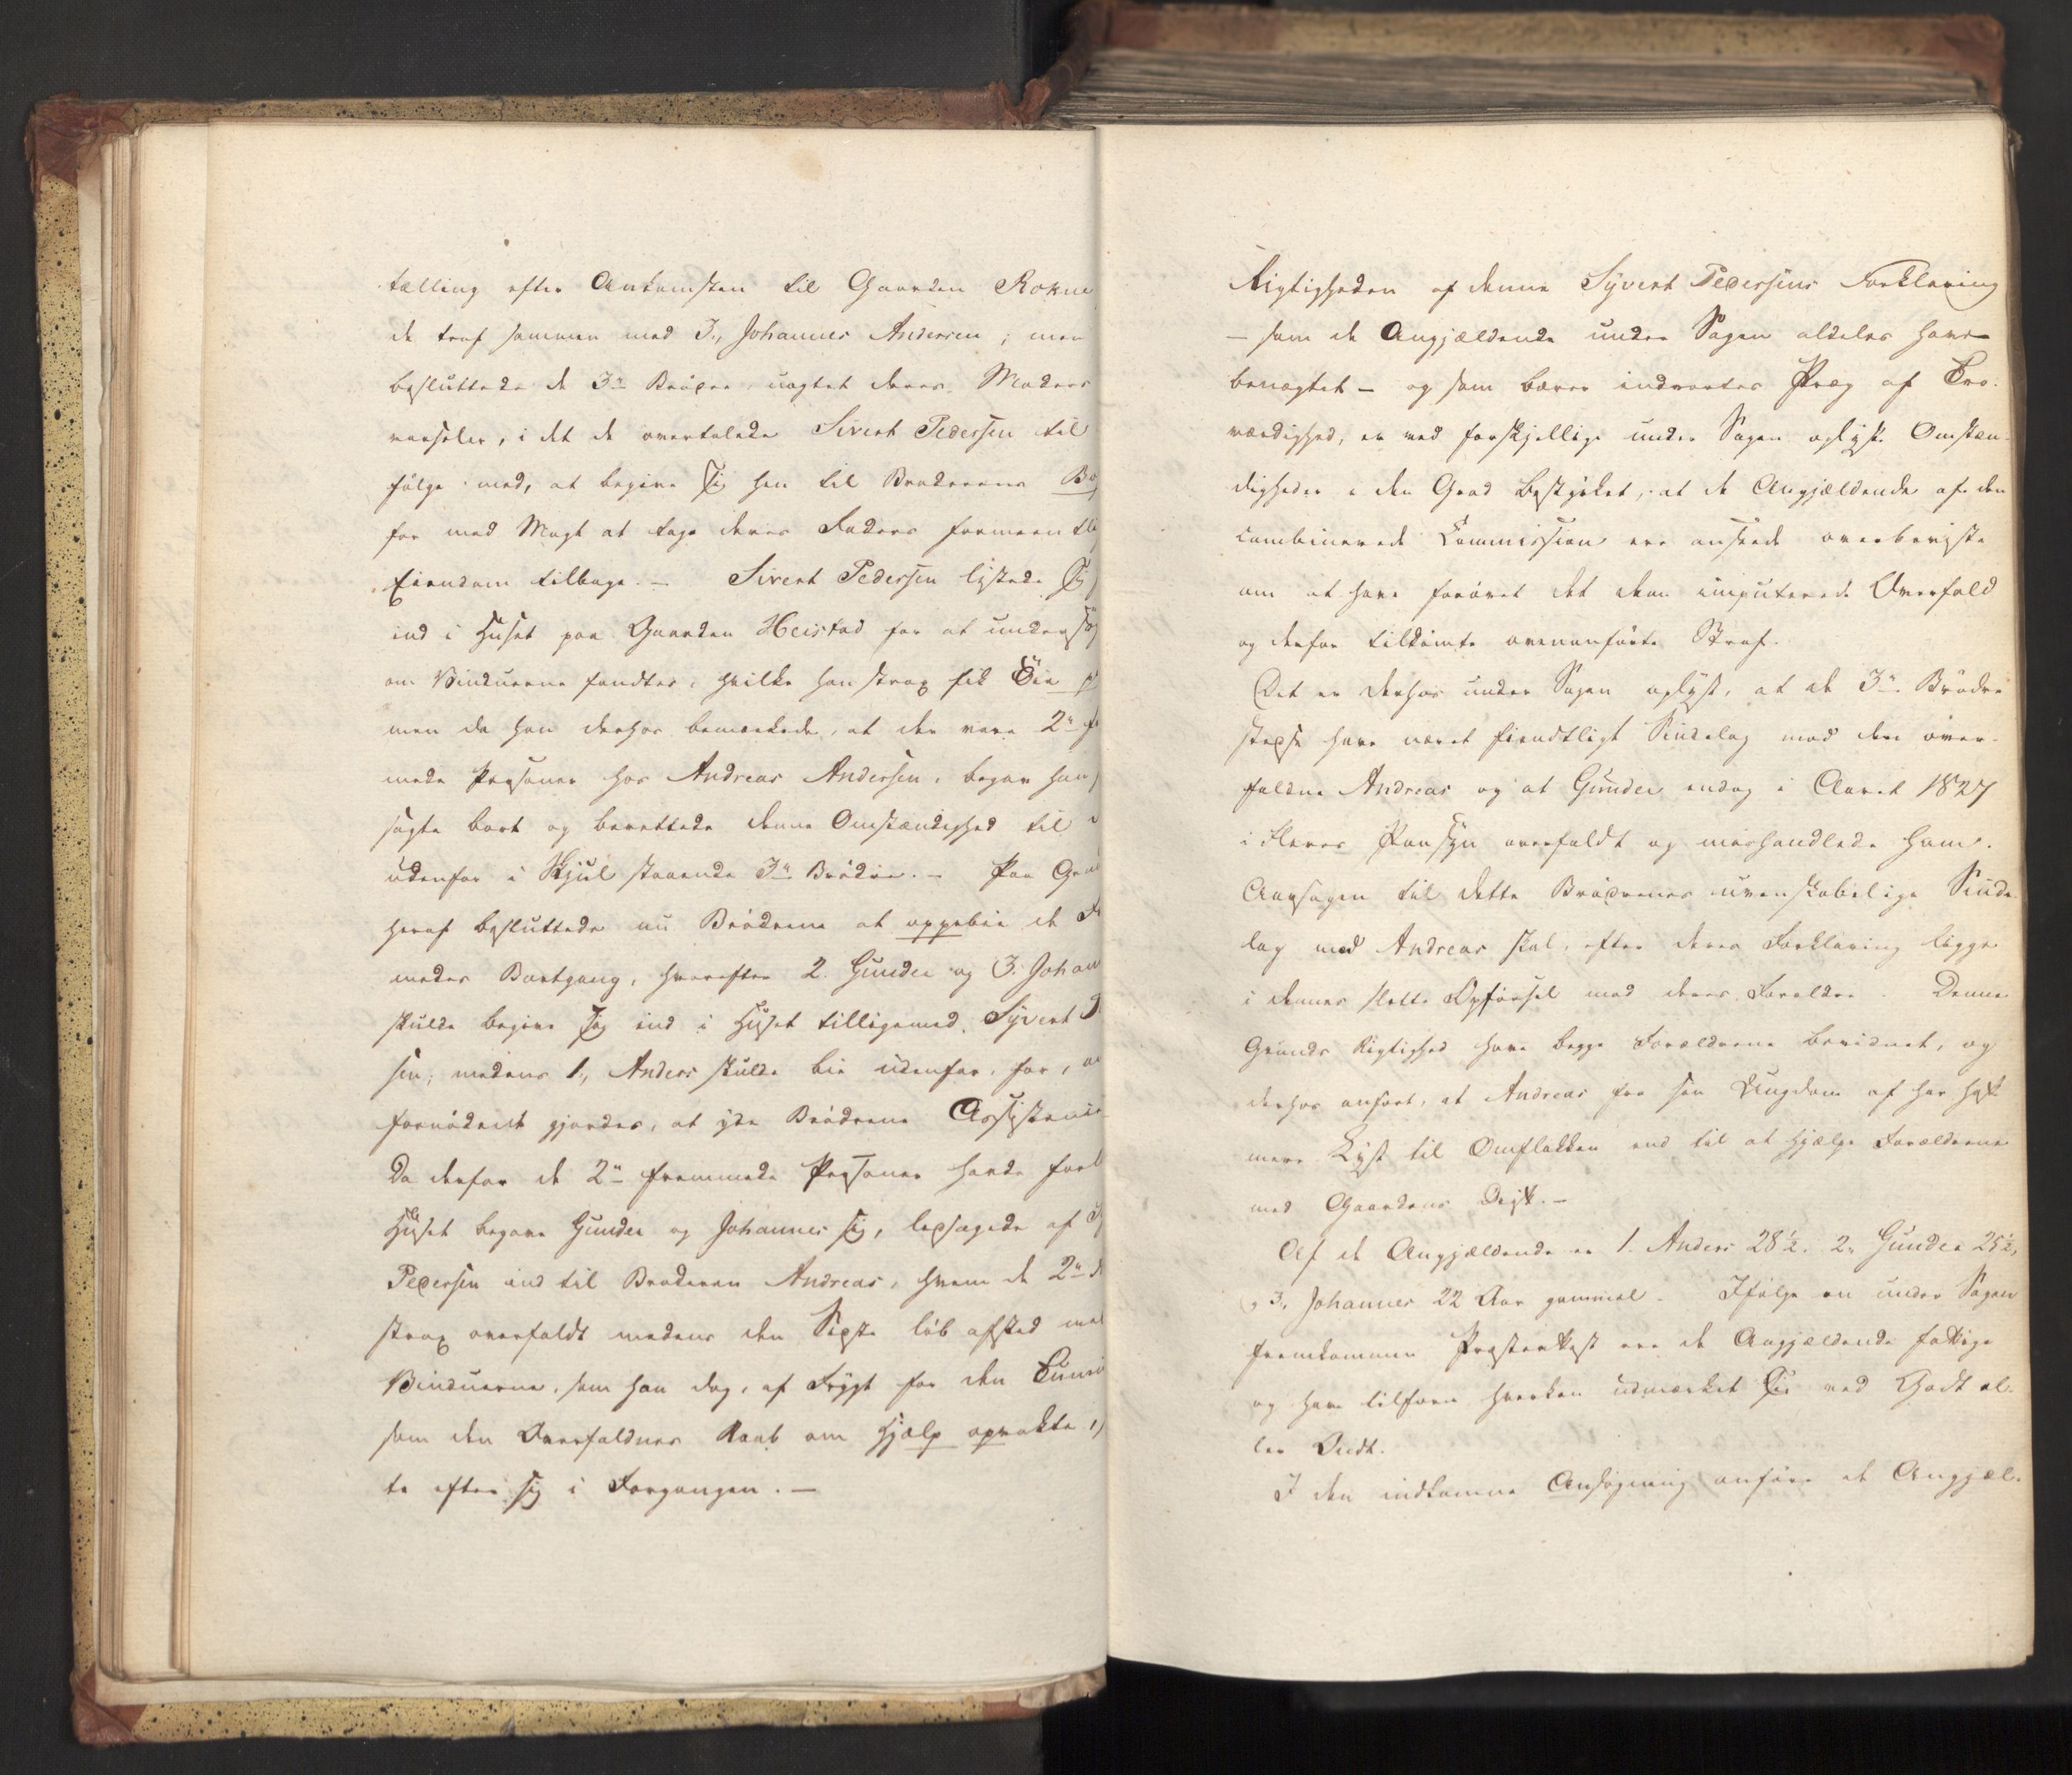 tælling efter Ankomsten til Gaarden Rokne
de traf sammen med 3., Johannes Andersen; men
besluttede de 3de Brødre, uagtet deres Moders
varseler, i det de overtalede Sivert Pedersen til
følge med, at begive sig hen til Broderens Bo
for med Magt at tage deres Faders formeentli
Eiendom tilbage. — Sivert Pedersen listede sig
ind i Huset paa Gaarden Heistad for at undersøg
om Vinduerne fandtes, hvilke han strax fik Øie p
men da han derhos bemærkede, at der vare 2de fr
mede Personer hos Andreas Andersen, begav han
sagte bort og berettede denne Omstændighed til
udenfor i Skjul staaende 3de Brødre. — Paa Grund
heraf besluttede nu Brødrene at oppebie de Fr
medes Bortgang, hvorefter 2. Gunder og 3. Johan
skulde begive sig ind i Huset tilligemed Syvert P.
sen; medens 1., Anders skulde bie udenfor, for, om
fornødent gjordes, at yde Brødrene Assistence
Da derfor de 2de fremmede Personer havde forl
Huset begave Gunder og Johannes sig, ledsagede af S
Pedersen ind til Broderen Andreas, hvem de 2de
strax overfaldt medens den Sidste løb afsted med
Vinduerne, som han dog, af Frygt for den Tumu
som den Overfaldnes Raab om Hjælp opvakte,
te efter sig i Forgangen. —
Rigtigheden af denne Syvert Pedersens Forklaring
— som de Angjældende under Sagen aldeles have
benægtet — og som bærer indvortes Præg af Tro-
værdighed, er ved forskjellige under Sagen oplyste Omstæn-
digheder i den Grad bestyrket, at de Angjældende af den
combinerede Commission ere ansеede overbeviste
om at have forøvet det dem imputerede Overfald
og derfor tildømte ovenanførte Straf.
Det er derhos under Sagen oplyst, at de 3de Brødre
stedse have næret fiendtligt Sindelag mod den over-
faldne Andreas og at Gunder endog i Aaret 1827
i Fleres Paasyn overfaldt og mishandlede ham.
Aarsagen til dette Brødrenes uvenskabelige Sinde-
lag mod Andreas skal, efter deres Forklaring ligge
i dennes slette Opførsel mod deres Forældre. Denne
Grunds Rigtighed have begge Forældrene bevidnet, og
derhos anført, at Andreas fra sin Ungdom af har havt
mere Lyst til Omflakken end til at hjælpe Forældrene
med Gaardens Drift. —
Af de Angjældende er 1. Anders 28½, 2. Gunder 25½,
og 3., Johannes 22 Aar gammel. Ifølge en under Sagen
fremkommen Præsteattest ere de Angjældende fattige
og have tilforn hverken udmærket sig ved Godt el-
ler Ondt.
I den indkomne Ansøgning anføre de Angjæl-